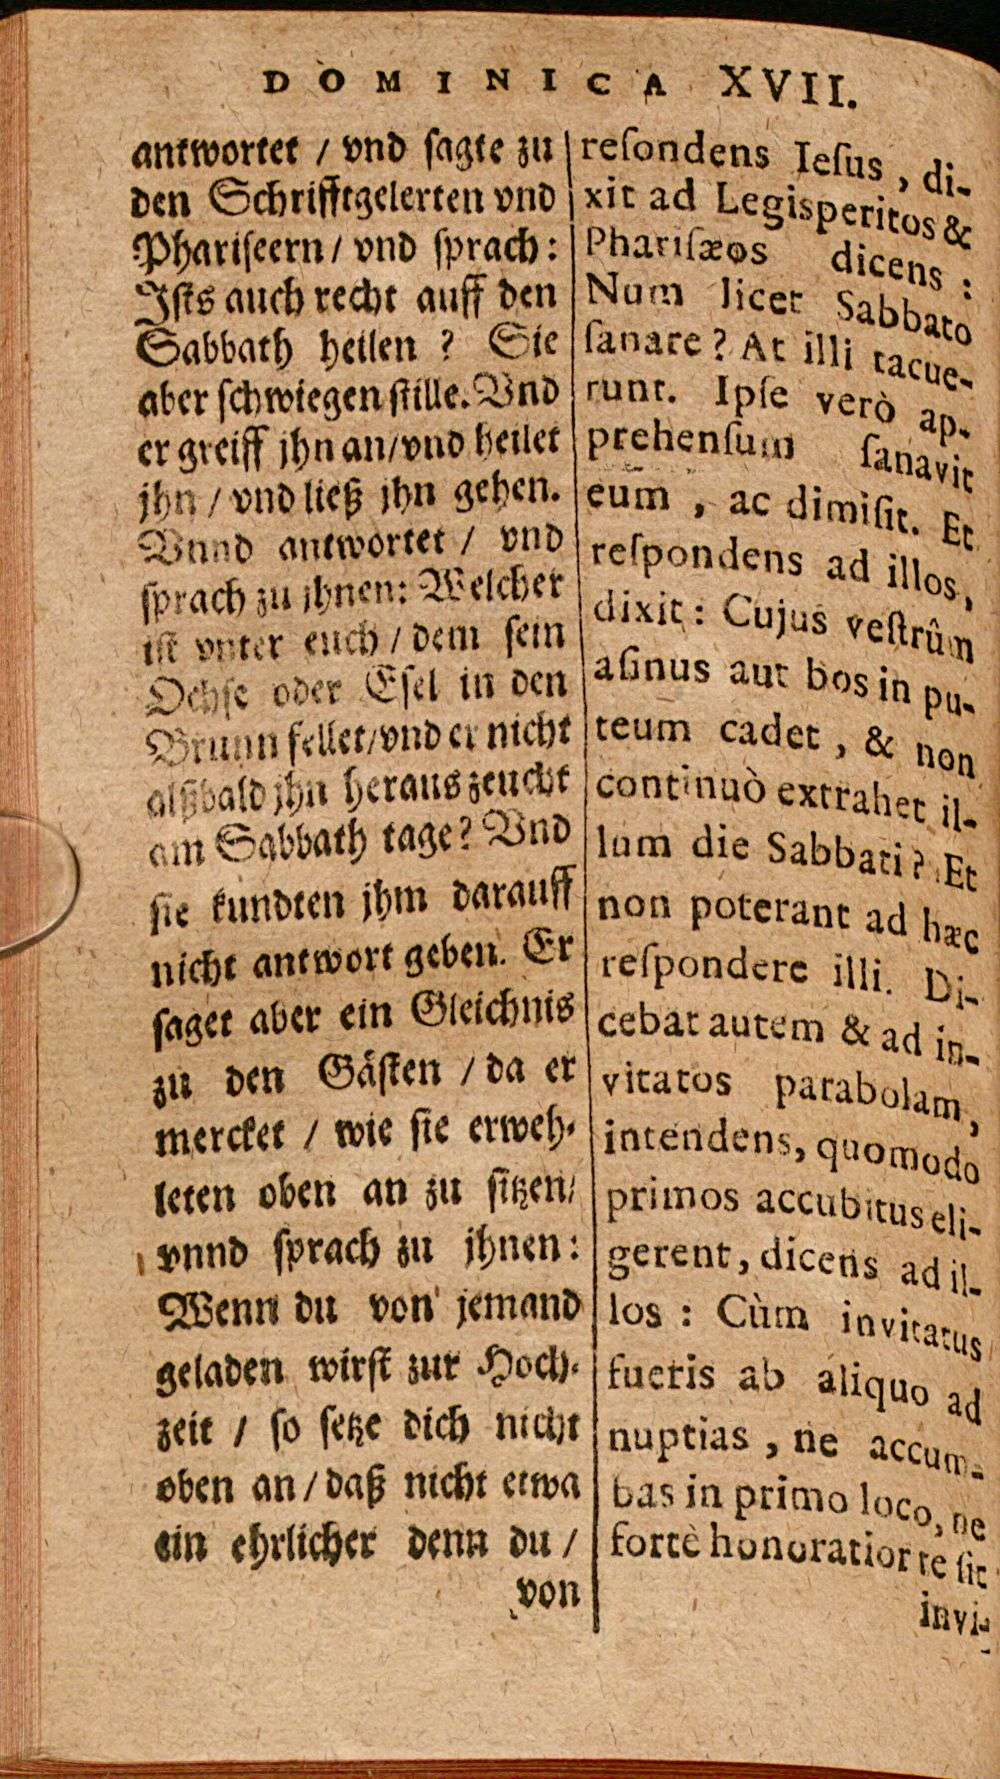 DOMINICA XVII.
antwortet / vnd sagte zu
den Schrifftgelerten vnd
Phariseern / vnd sprach:
Jsts auch recht auff den
Sabbath heilen ? Sie
aber schwiegen stille. Vnd
er greiff jhn an / vnd heilet
jhn / vnd ließ jhn gehen.
Vnnd antwortet / vnd
sprach zu jhnen: Welcher
ist vnter euch / dem sein
Ochse oder Esel in den
Brunn fellet / vnd er nicht
alßbald jhn heraus zeucht
am Sabbath tage? Vnd
sie kundten jhm darauff
nicht antwort geben. Er
saget aber ein Gleichnis
zu den Gästen / da er
mercket / wie sie erweh-
leten oben an zu sitzen /
vnnd sprach zu jhnen:
Wenn du von jemand
geladen wirst zur Hoch-
zeit / so setze dich nicht
oben an / daß nicht etwa
ein ehrlicher denn du /
von
reſondens Ieſus, di-
xit ad Legisperitos &
Phariſæos dicens :
Num licet Sabbato
ſanare ? At illi tacue-
runt. Ipſe verò ap-
prehenſum ſanavit
eum, ac dimiſit. Et
reſpondens ad illos,
dixit: Cujus veſtrûm
aſinus aut bos in pu-
teum cadet, & non
continuò extrahet il-
lum die Sabbati? Et
non poterant ad hæc
reſpondere illi. Di-
cebat autem & ad in-
vitatos parabolam,
intendens, quomodo
primos accubitus eli-
gerent, dicens ad il-
los : Cùm invitatus
fueris ab aliquo ad
nuptias, ne accum-
bas in primo loco, ne
fortè honoratior te ſit
invi-